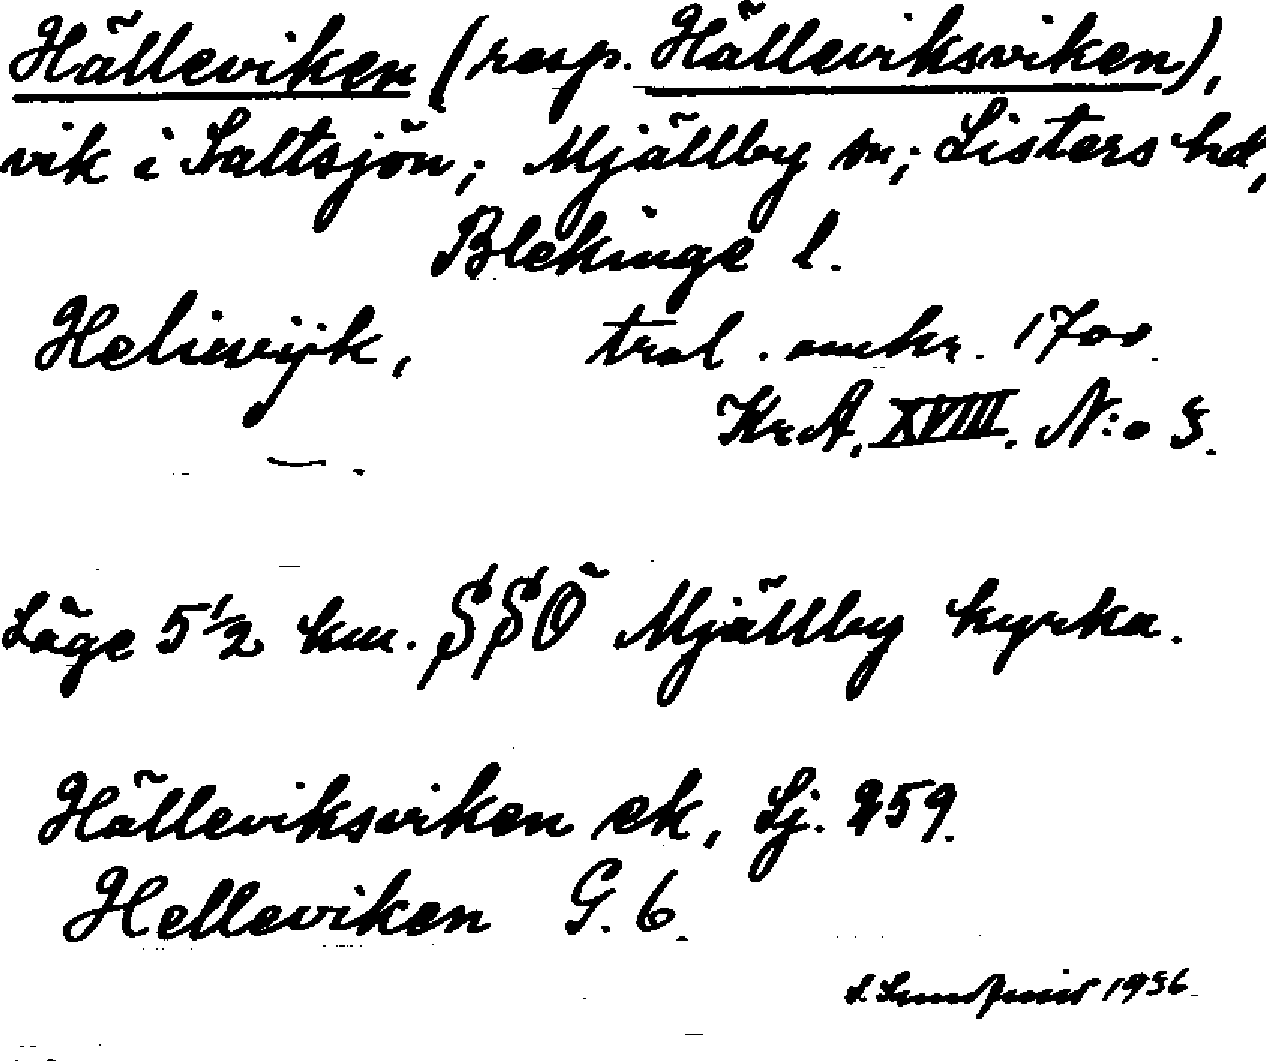 Hälleviken (resp. Hälleviksviken),
vik i Saltsjön; Mjällby sn; Listers hd,
Blekinge l.
Heliwijk, trol. omkr. 1700
KrA. XVIII. N:o 3.
Läge 5 1/2 km. SSO Mjällby kyrka.
Hälleviksviken ek, Sj. 259.
Helleviken G. 6
1936